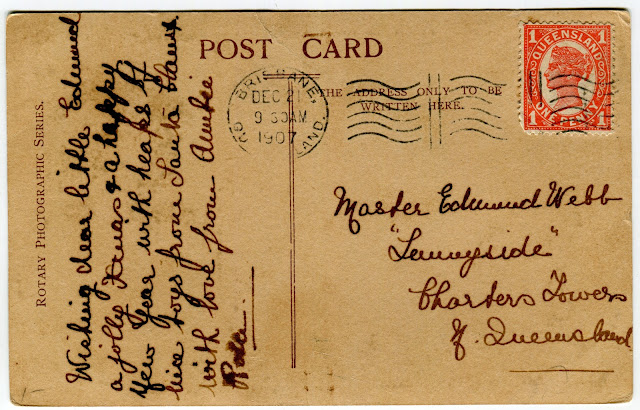 POST CARD
THE ADDRESS ONLY TO BE
WRITTEN HERE.
BRISBANE,
DEC 21
9 30AM
1907
QUEENSLAND
1 1
ONE PENNY
ROTARY PHOTOGRAPHIC SERIES.
Wishing dear little Edmund
a jolly Xmas & a happy
New Year with heaps of
nice toys from Santa Claus
with love from Auntie
Rosa.
Master Edmund Webb
"Sunnyside"
Charters Towers
N. Queensland